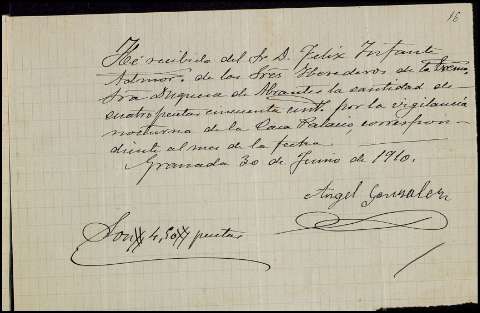 16
He recibido del Sr. D. Felix Infante
Admor. de los Sres Herederos de la Excma.
Sra Duquesa de Abrantes la cantidad de
cuatro pesetas cincuenta cent. por la vigilancia
nocturna de la Casa Palacio, correspon-
diente al mes de la fecha.
Granada 30 de Junio de 1910.
Angel Gonzalez
Son 4,50 pesetas